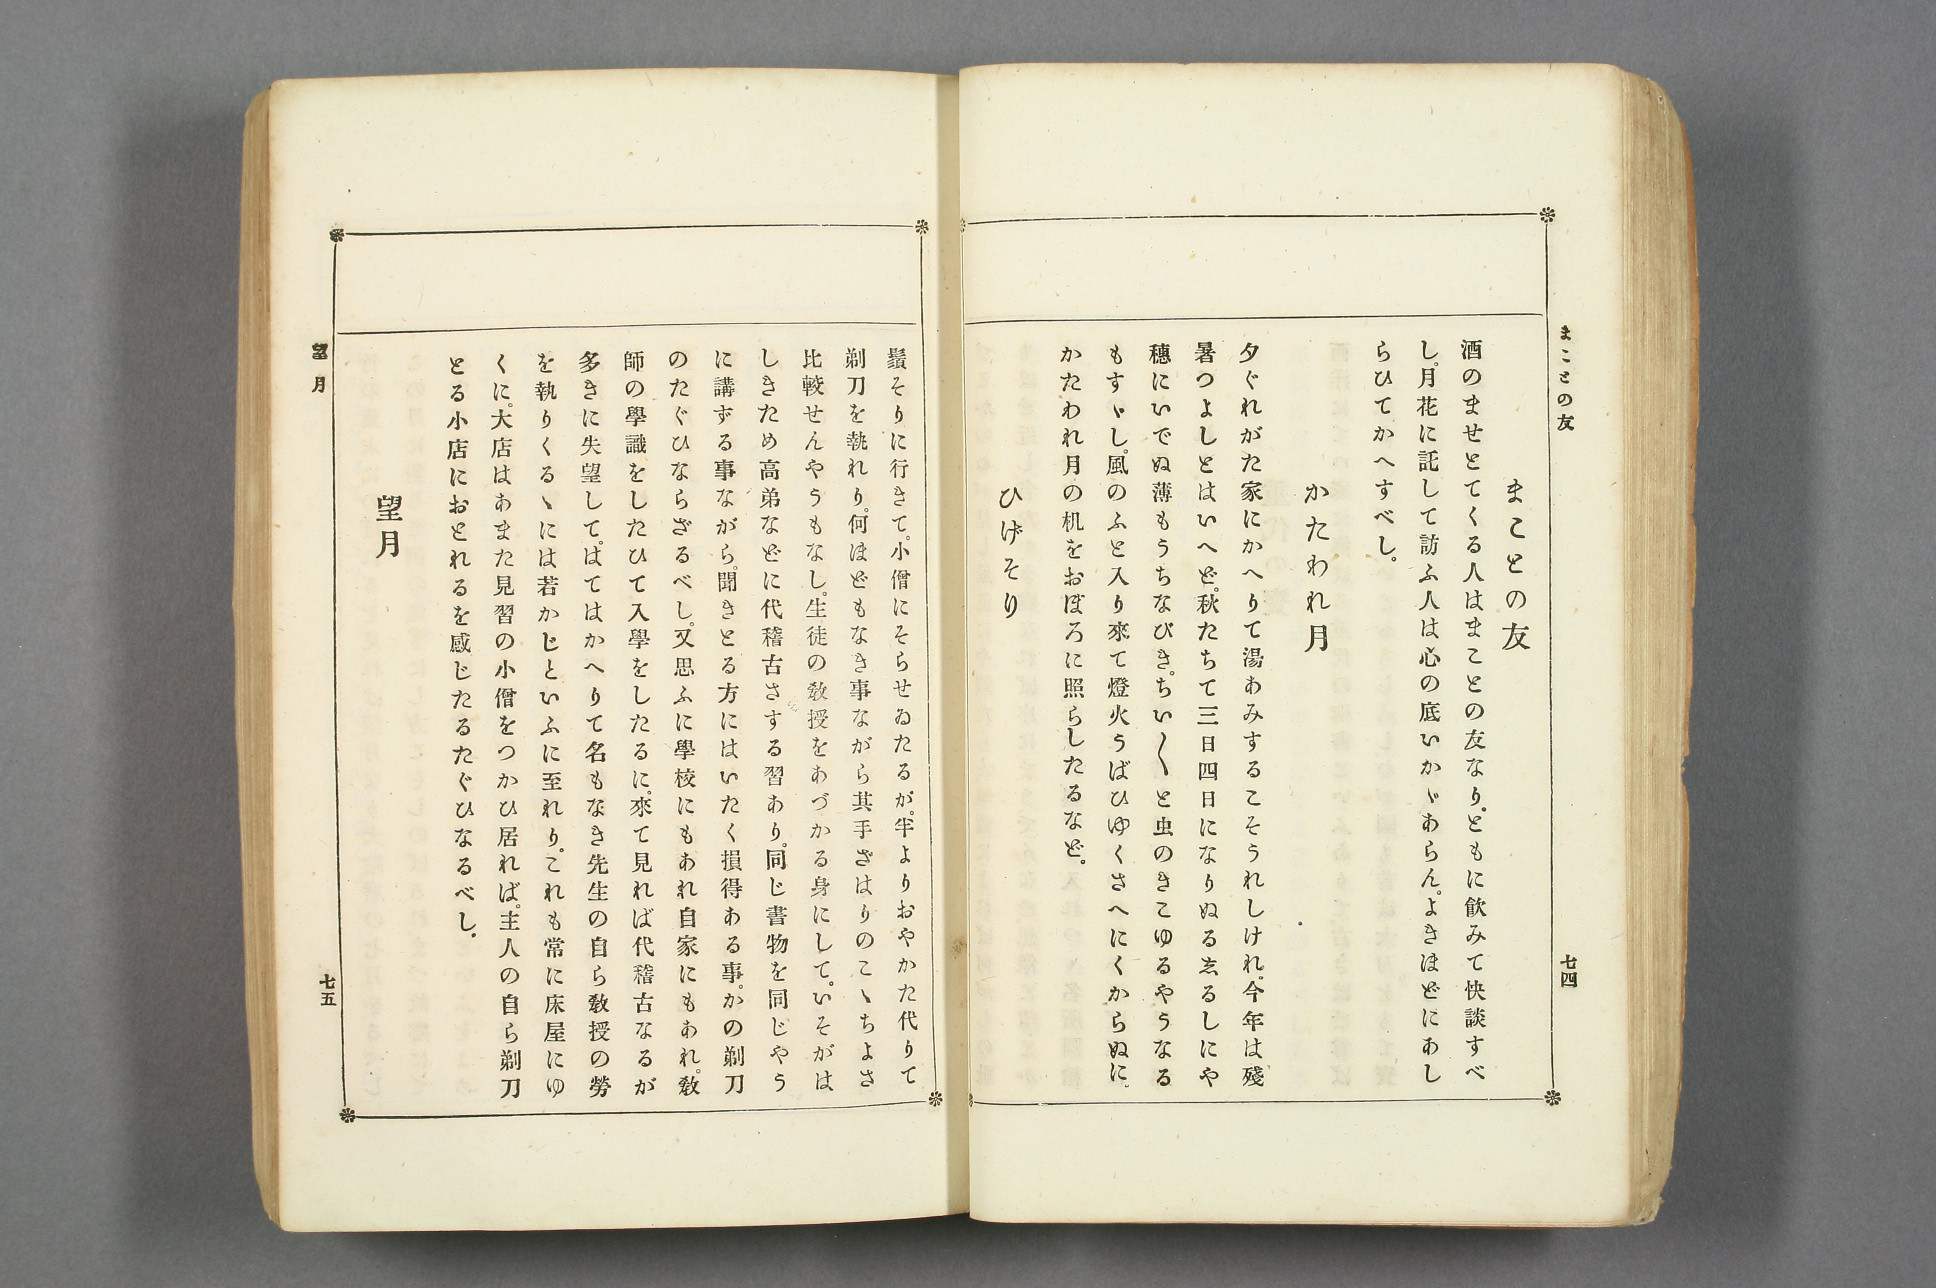 まことの友
七四
まことの友
酒のませとてくる人はまことの友なり。ともに飮みて快談すべ
し。月花に託して訪ふ人は心の底いかゞあらん。よきほどにあし
らひてかへすべし。
かたわれ月
夕ぐれがた家にかへりて湯あみするこそうれしけれ。今年は殘
暑つよしとはいへど。秋たちて三日四日になりぬるゑるしにや
穗にいでぬ薄もうちなびき。ちい〳〵と虫のきこゆるやうなる
もすゞし。風のふと入り來て燈火うばひゆくさへにくからぬに。
かたわれ月の机をおぼろに照らしたるなど。
ひげそり
鬚そりに行きて。小僧にそらせゐたるが。半よりおやかた代りて
剃刀を執れり。何ほどもなき事ながら其手ざはりのこゝちよさ
比較せんやうもなし。生徒の敎授をあづかる身にして。いそがは
しきため高弟などに代稽古さする習あり。同じ書物を同じやう
に講ずる事ながら。聞きとる方にはいたく損得ある事。かの剃刀
のたぐひならざるべし。又思ふに學校にもあれ自家にもあれ。敎
師の學識をしたひて入學をしたるに。來て見れば代稽古なるが
多きに失望して。はてはかへりて名もなき先生の自ら敎授の勞
を執りくるゝには若かじといふに至れり。これも常に床屋にゆ
くに。大店はあまた見習の小僧をつかひ居れば。主人の自ら剃刀
とる小店におとれるを感じたるたぐひなるべし。
望月
望月
七五